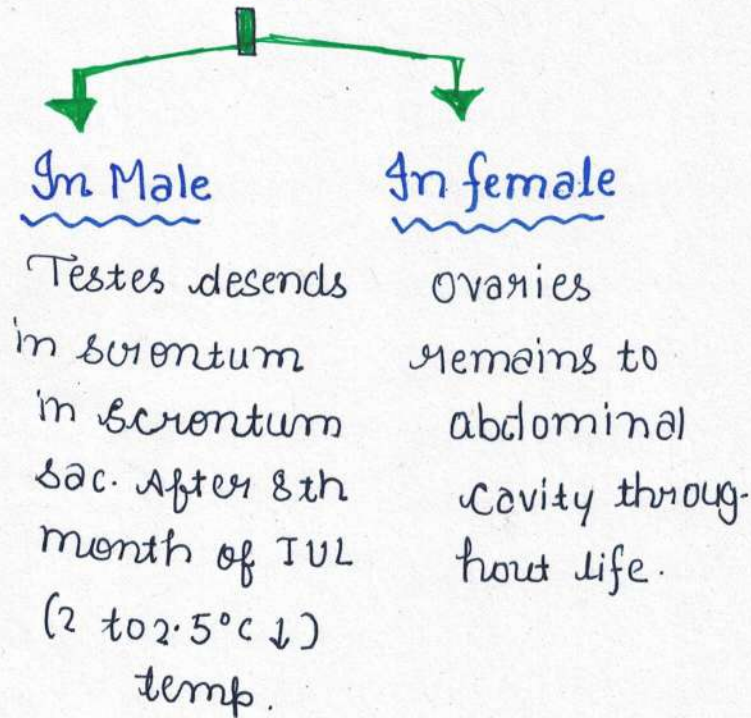 In Male
Testes desends
in scrontum
in scrontum
sac. After 8th
month of IUL
(2 to 2.5°C ↓)
temp.
In female
ovaries
remains to
abdominal
cavity throug-
hout life.